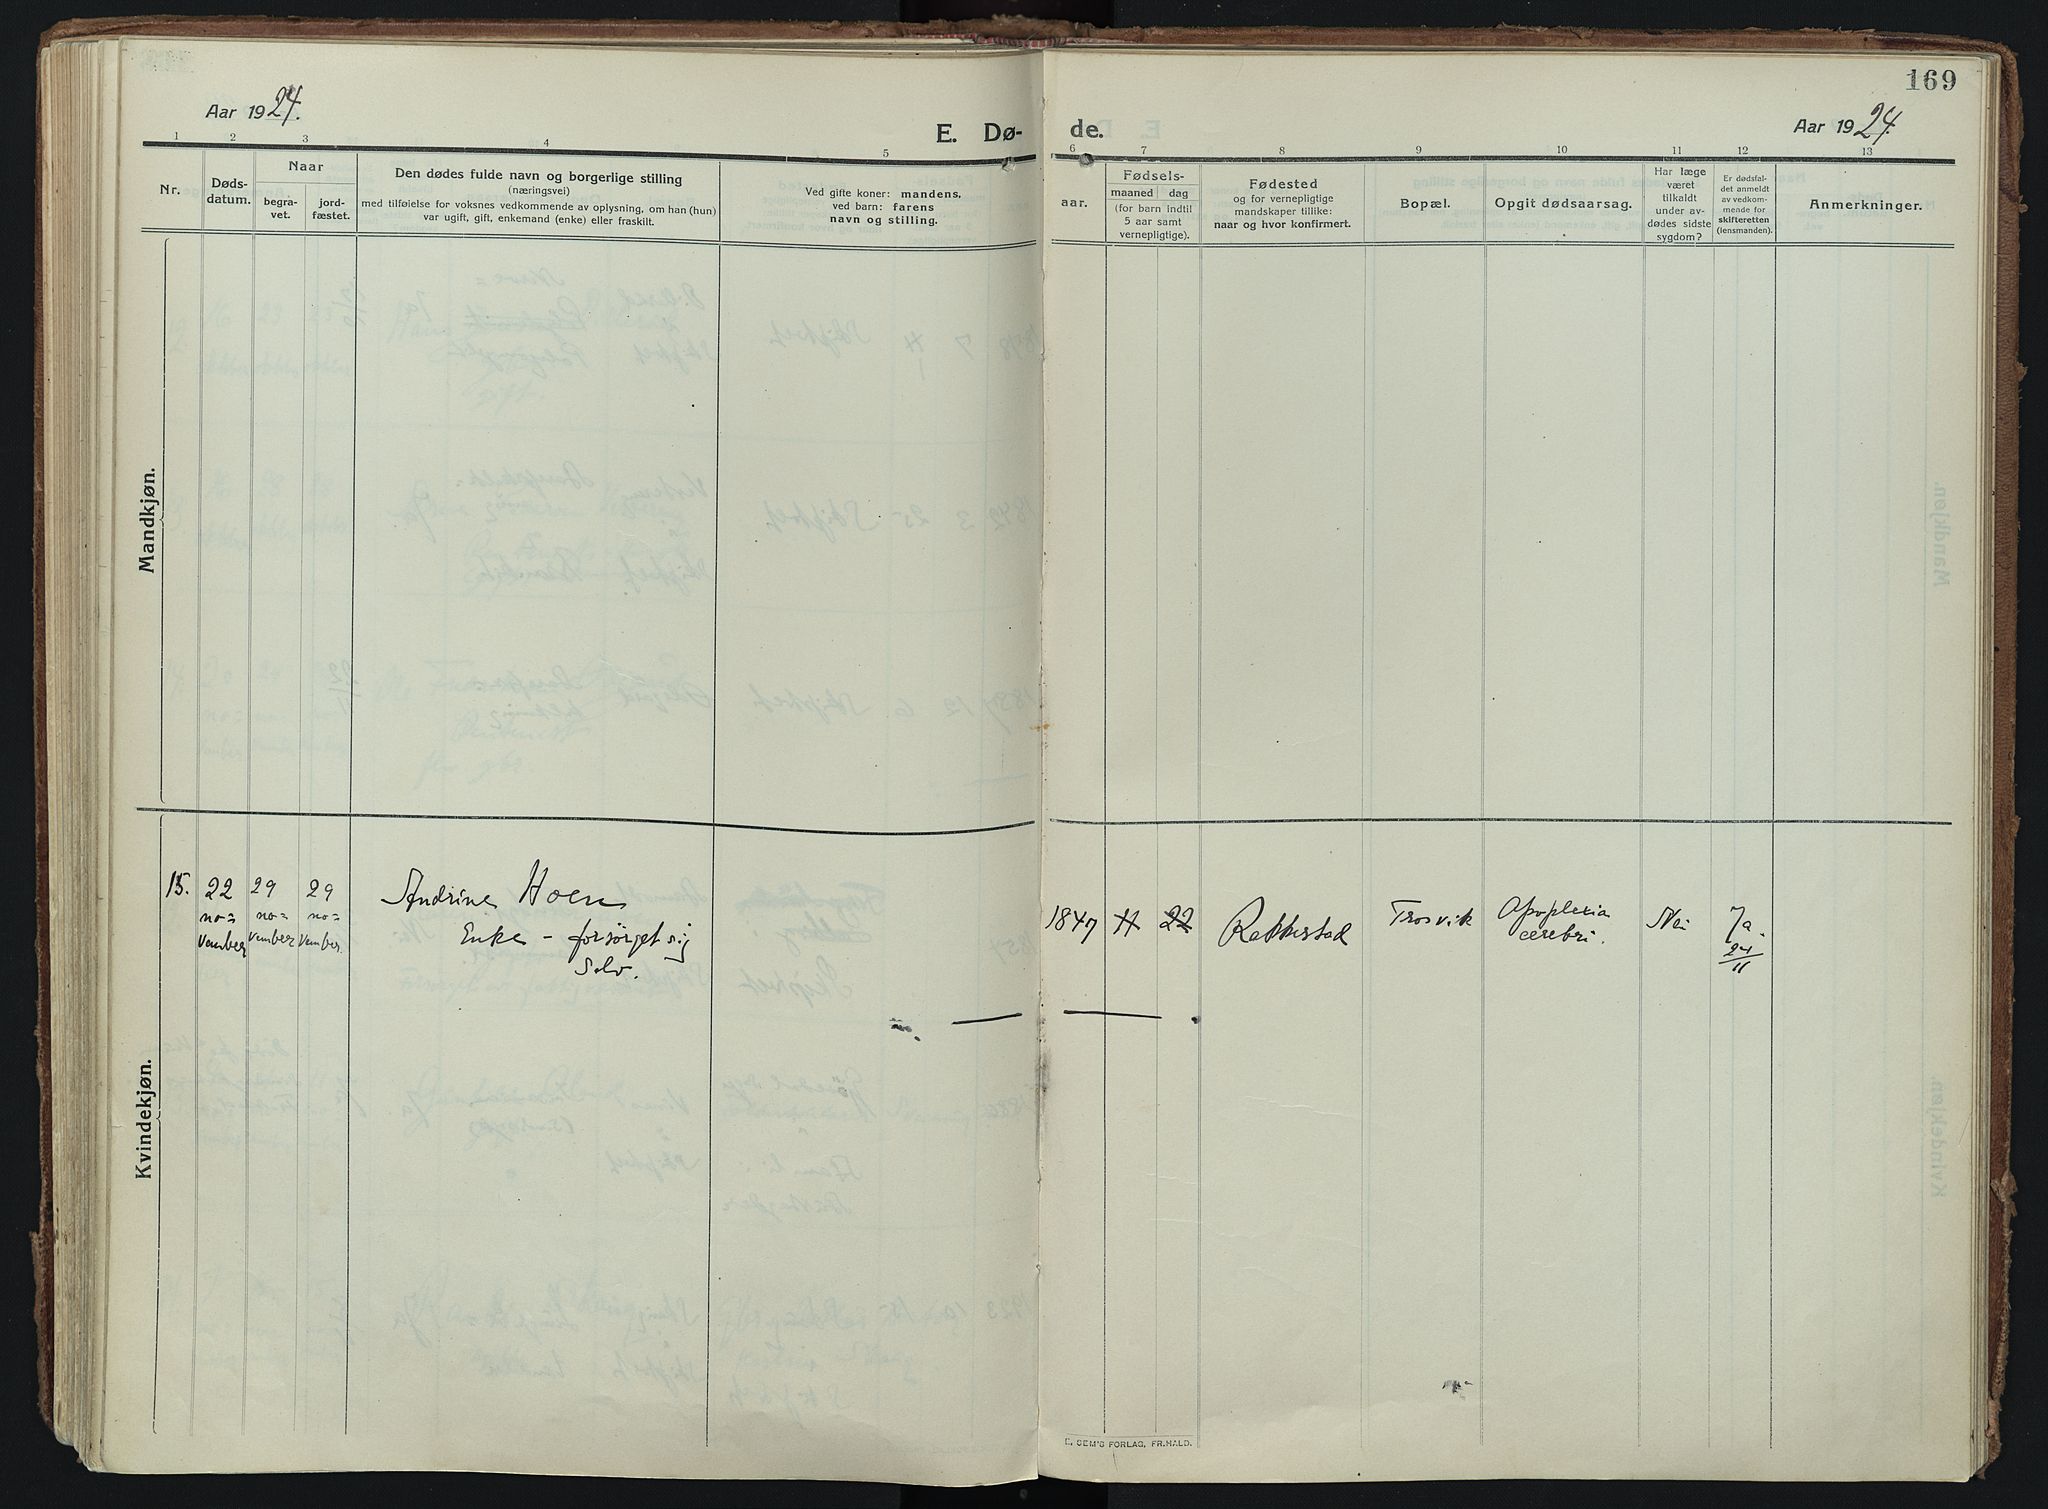 169
Aar 1924.
E. Dø-
de.
Aar 1924.
1 2 3 4 5 6 7 8 9 10 11 12 13
Nr.
Døds-
datum.
Naar
begra-
vet.
jord-
fæstet.
Den dødes fulde navn og borgerlige stilling
(næringsvei)
med tilføielse for voksnes vedkommende av oplysning, om han (hun)
var ugift, gift, enkemand (enke) eller fraskilt.
Ved gifte koner: mandens,
ved barn: farens
navn og stilling.
aar.
Fødsels-
maaned dag
(for barn indtil
5 aar samt
vernepligtige).
Fødested
og for vernepligtige
mandskaper tillike:
naar og hvor konfirmert.
Bopæl.
Opgit dødsaarsag.
Har læge
været
tilkaldt
under av-
dødes sidste
sygdom?
Er dødsfal-
det anmeldt
av vedkom-
mende for
skifteretten
(lensmanden).
Anmerkninger.
Mandkjøn.
Kvindekjøn.
15.
22
no=
vember
29
no=
vember
29
no=
vember.
Andrine Hoen
Enke - forsørget sig
selv.
1847
11
22
Rakkestad
Trosvik
Apoplexia
cerebri.
Nei
Ja.
24/11
E. SEM'S FORLAG, FR.HALD.